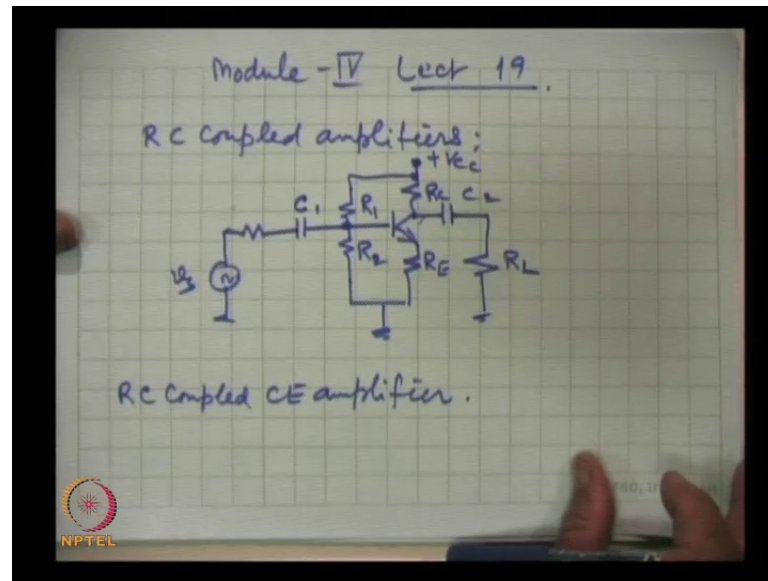 Module - IV Lect 19.
RC Coupled amplifiers:
+Vcc
C1 R1 RC C2
R2 RE RL
vs
RC Coupled CE amplifier.
NPTEL